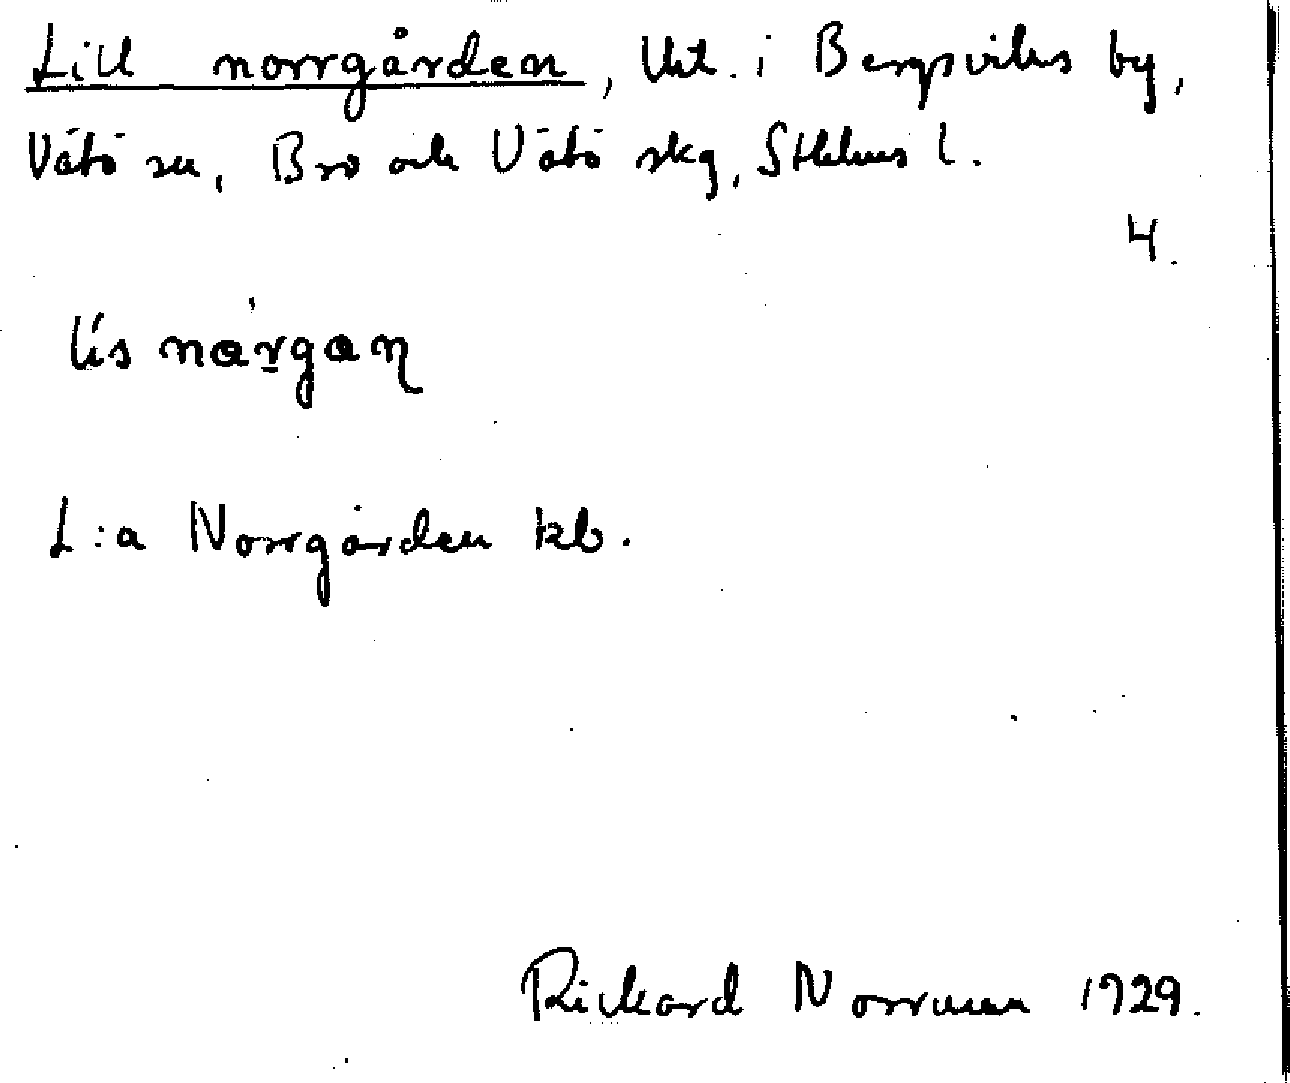 Lill norrgården, Utl. i Bergsvikens by,
Vätö sn, Bro och Vätö skg, Sthlms l.
4.
lís nárgaɳ
L:a Norrgården kb.
Rickard Norrman 1929.